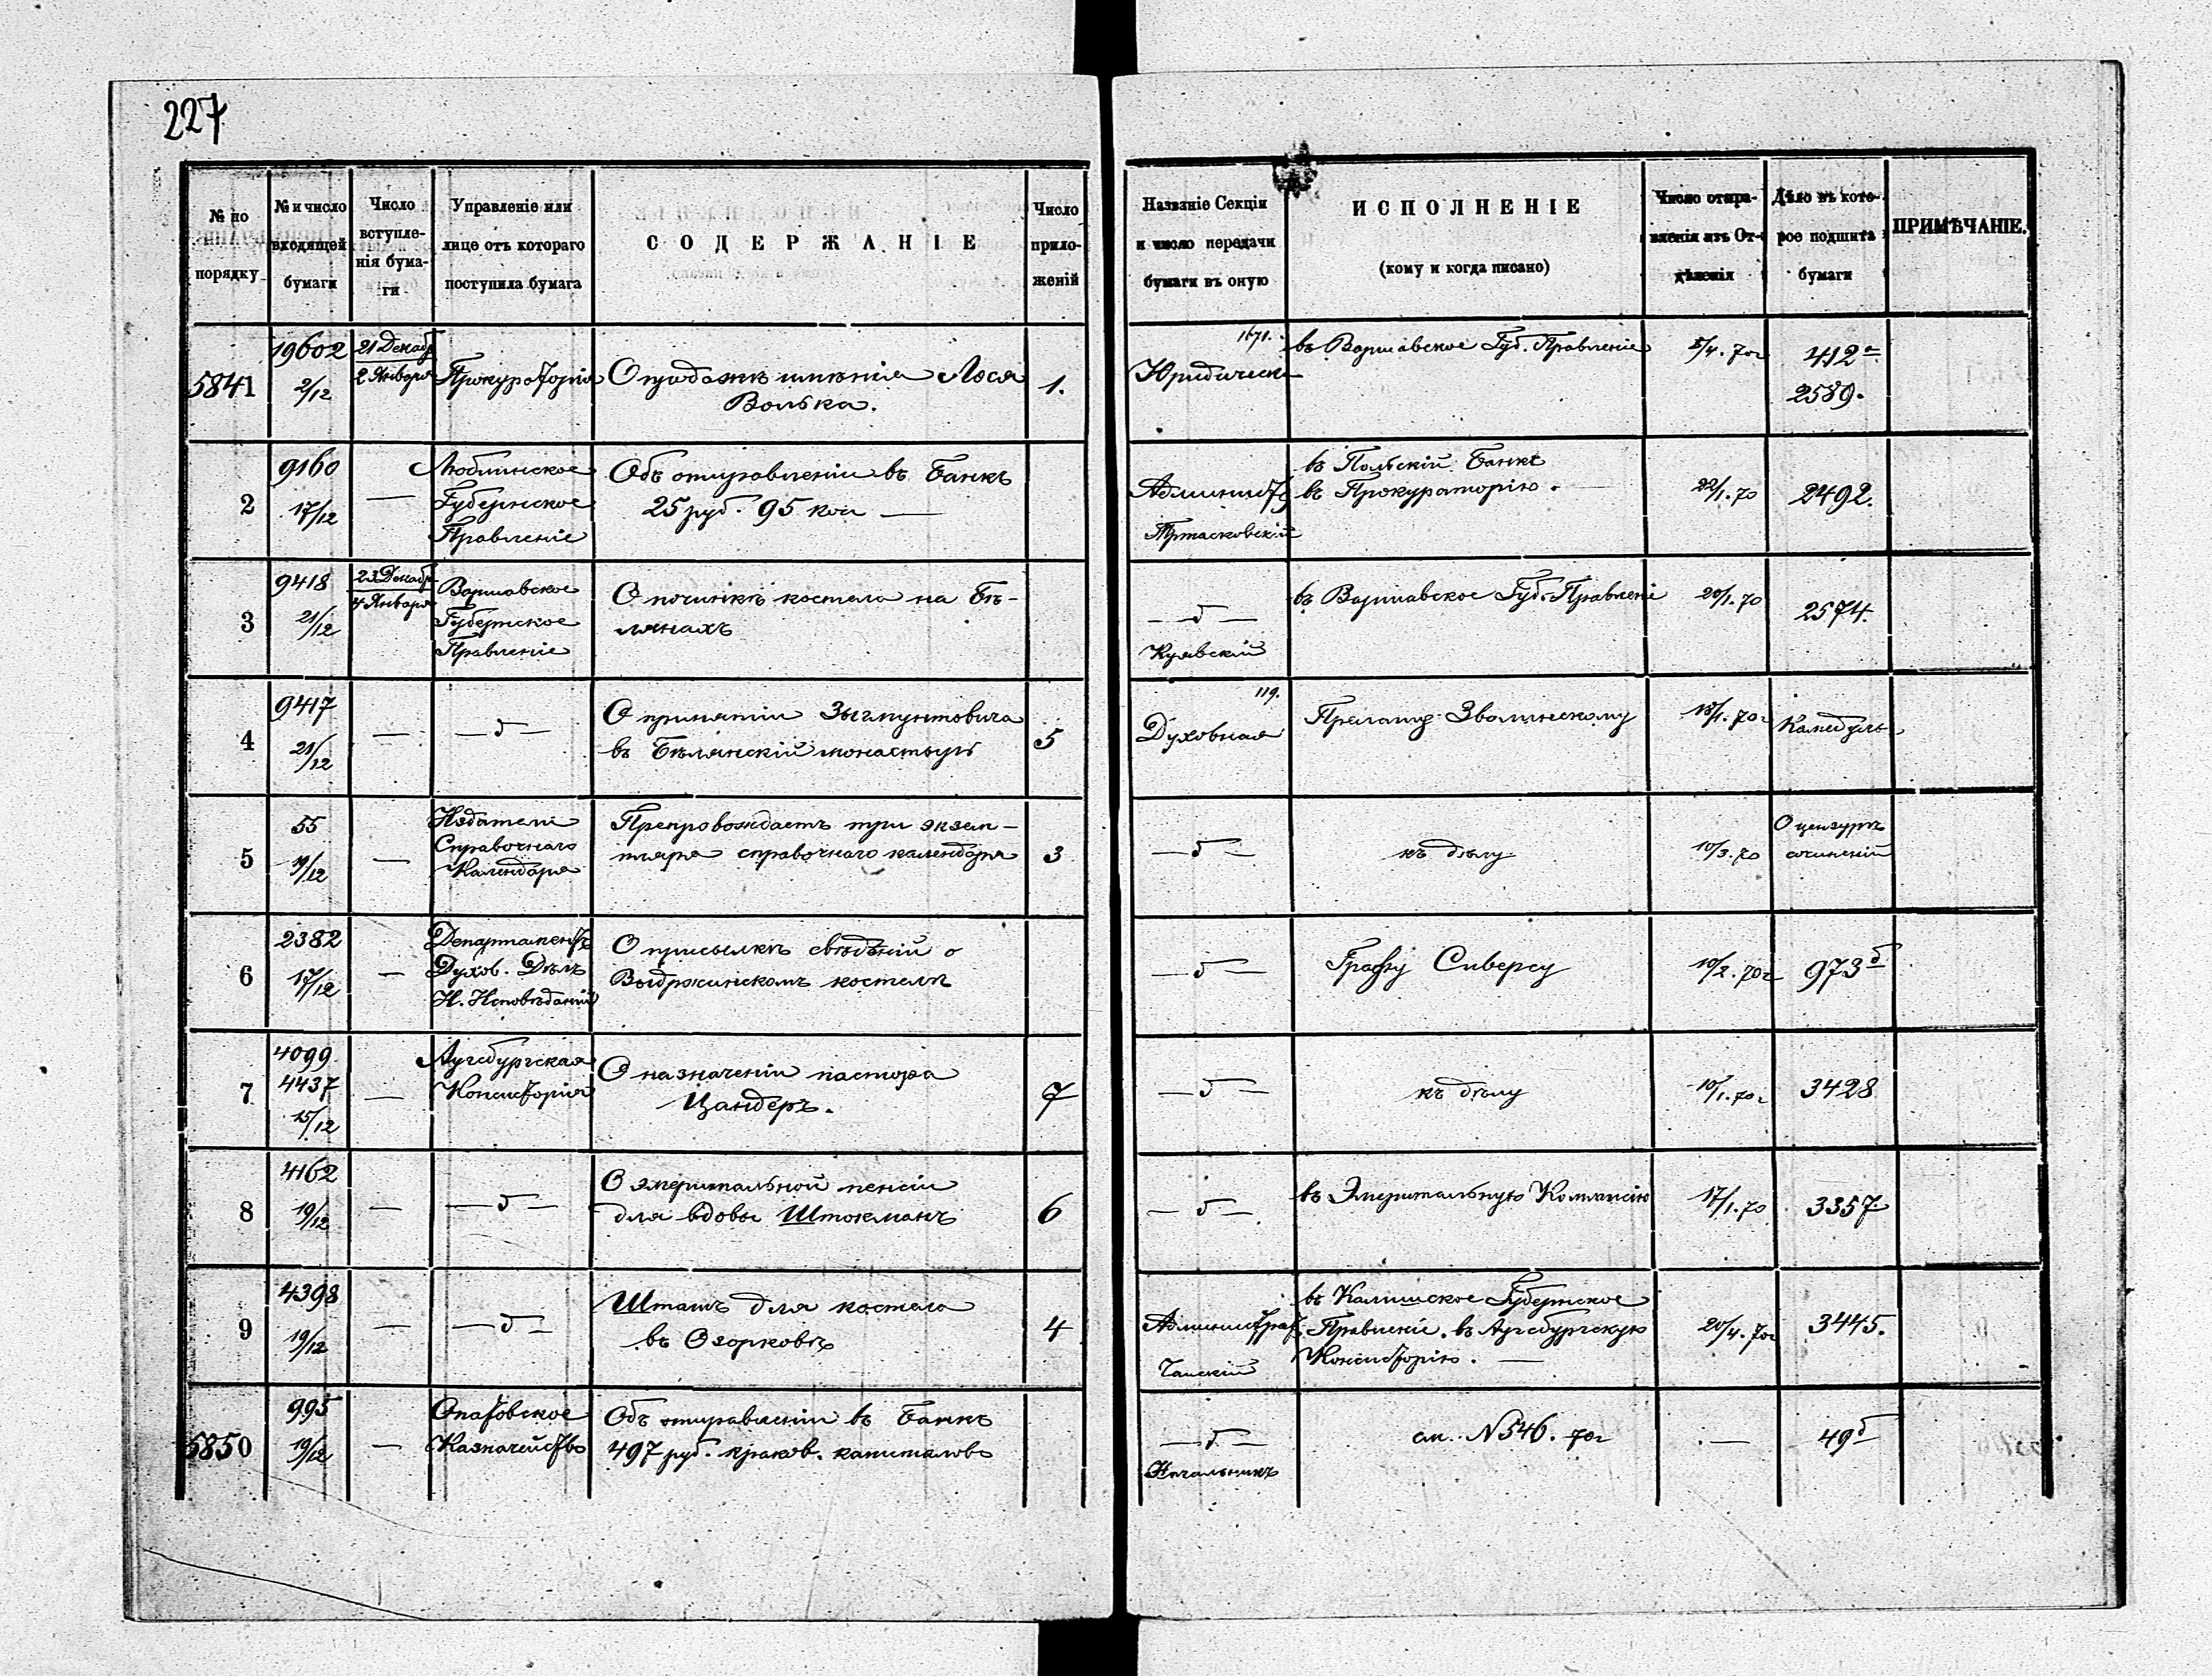 227
№ по порядку
№ и число входящей бумаги
Число вступле-нія бума-ги
Управленіе или лице отъ котораго поступила бумага
СОДЕРЖАНІЕ
Число прило-женій
Названіе Секціи и число передачи бумаги въ оную
ИСПОЛНЕНІЕ
(кому и когда писано)
Число отпра-вленія изъ От-дѣленія
Дѣло въ кото-рое подшита бумаги
ПРИМѢЧАНІЕ.
5841
19602
2/12
21 Декабр
2 Января
Прокураторія
О продажѣ имѣнія Лося
Волька.
1.
1671.
Юридическ
въ Варшавское Губ. Правленіе
5/4. 70г
412а
2589.
2
9160
17/12
—
Люблинское
Губернское
Правленіе
Объ отправленіи въ Банкъ
25 руб. 95 коп —
Админист
въ Польскій Банкъ
въ Прокураторію.
22/1. 70
2492.
3
9418
21/12
23 Декабр
4 Января
Варшавское
Губернское
Правленіе
О починкѣ костела на Бѣ-
лянахъ
— 5 —
Куявскій
въ Варшавское Губ. Правленіе
20/1. 70
2574.
4
9417
21/12
—
— 5 —
О принятіи Зыгмунтовича
въ Бѣлянскій монастырь
5
119.
Духовная
Прелату Зволинскому
18/1. 70г
Камедулы
5
55
19/12
—
Издатели
Справочнаго
Календаря
Препровождаетъ три экзем-
пляра справочнаго календаря
3
— 5 —
къ дѣлу
10/3. 70
О цензурѣ
сочиненій
6
2382
17/12
—
Департаментъ
Духов. Дѣлъ
И. Исповѣданій
О присылкѣ свѣдѣній о
Выдржинскомъ костелѣ
— 5 —
Графу Сиверсу
10/2. 70г
973б
7
4099
4437
15/12
—
Аугсбургская
Консисторія
О назначеніи пастора
Цандеръ.
7
— 5 —
къ дѣлу
10/1. 70г
3428
8
4162
19/12
—
— 5 —
О эмеритальной пенсіи
для вдовы Штокманъ
6
— 5 —
въ Эмеритальную Коммисію
17/1. 70
3357
9
4398
19/12
—
— 5 —
Штатъ для костела
въ Озорковѣ
4
Администрат
въ Калишское Губернское
Правленіе. въ Аугсбургскую
Консисторію. —
20/4. 70г
3445.
5850
995
19/12
—
Опатовское
Казначейство
Объ отправленіи въ Банкъ
497 руб. краков. капиталовъ
— 5 —
Начальникъ
см. N 546. 70г
—
49б